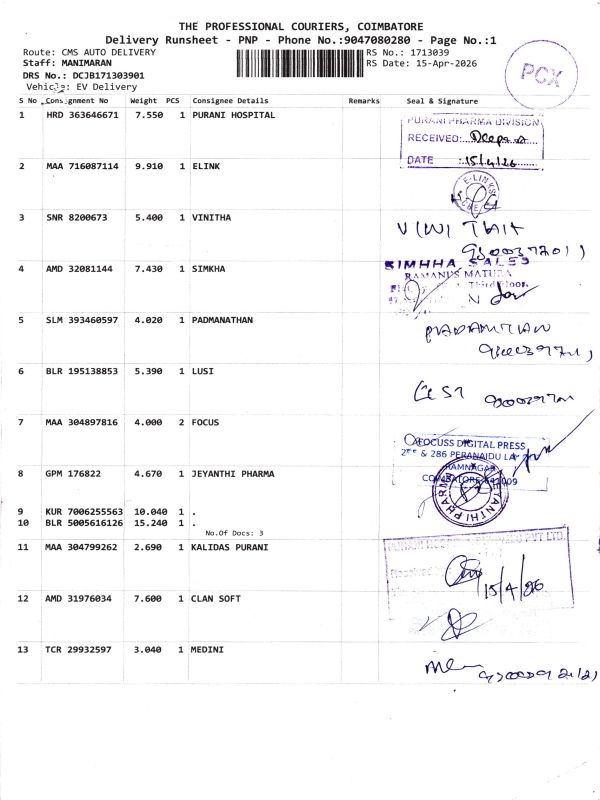 THE PROFESSIONAL COURIERS, COIMBATORE
Delivery Runsheet - PNP - Phone No.:9047080280 - Page No.:1
Route: CMS AUTO DELIVERY
RS No.: 1713039
Staff: MANIMARAN
RS Date: 15-Apr-2026
DRS No.: DCJB171303901
Vehicle: EV Delivery
PCX
S No Consignment No Weight PCS Consignee Details Remarks Seal & Signature
1 HRD 363646671 7.550 1 PURANI HOSPITAL
PURANI PHARMA DIVISION
RECEIVED:
DATE : 15/4/26
2 MAA 716087114 9.910 1 ELINK
E-LINKS
3 SNR 8200673 5.400 1 VINITHA
4 AMD 32081144 7.430 1 SIMKHA
SIMHHA SALES
Third Floor,
5 SLM 393460597 4.020 1 PADMANATHAN
6 BLR 195138853 5.390 1 LUSI
7 MAA 304897816 4.000 2 FOCUS
FOCUSS DIGITAL PRESS
& 286 PERANAIDU
RAMNAGAR
8 GPM 176822 4.670 1 JEYANTHI PHARMA
9 KUR 7006255563 10.040 1 .
10 BLR 5005616126 15.240 1 .
No.Of Docs: 3
11 MAA 304799262 2.690 1 KALIDAS PURANI
PVT LTD.
15/4/26
12 AMD 31976034 7.600 1 CLAN SOFT
13 TCR 29932597 3.040 1 MEDINI